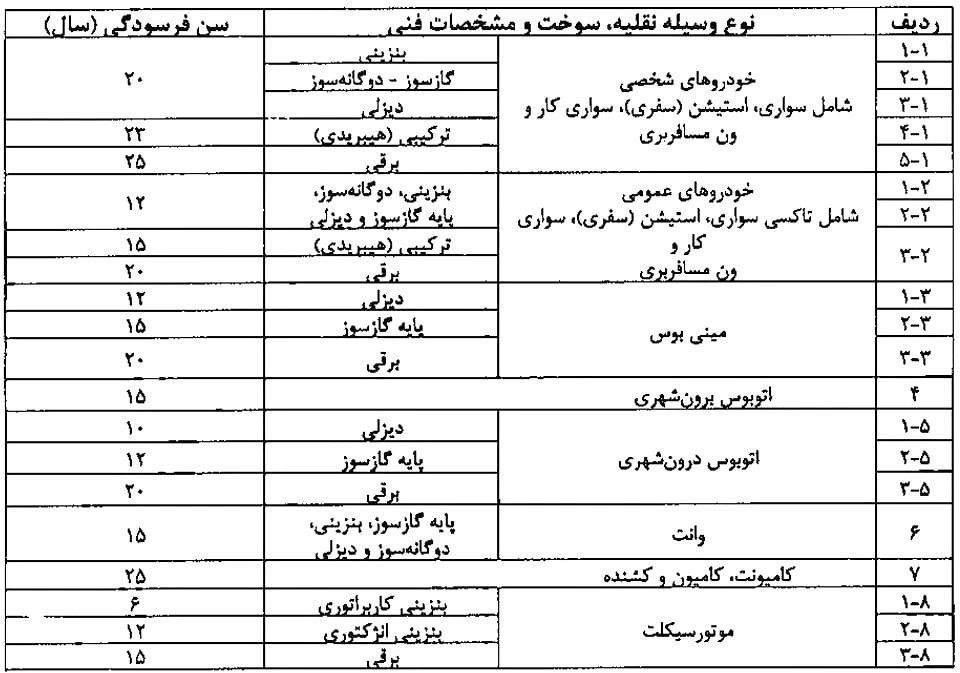 ردیف نوع وسیله نقلیه، سوخت و مشخصات فنی سن فرسودگی (سال)
۱-۱ خودروهای شخصی شامل سواری، استیشن (سفری)، سواری کار و ون مسافربری بنزینی ۲۰
۲-۱ گازسوز - دوگانه‌سوز
۳-۱ دیزلی
۴-۱ ترکیبی (هیبریدی) ۲۳
۵-۱ برقی ۲۵
۱-۲ خودروهای عمومی بنزینی، دوگانه‌سوز، ۱۲
۲-۲ شامل تاکسی سواری، استیشن (سفری)، سواری پایه گازسوز و دیزلی
۳-۲ کار و ترکیبی (هیبریدی) ۱۵
ون مسافربری برقی ۲۰
۱-۳ مینی بوس دیزلی ۱۲
۲-۳ پایه گازسوز ۱۵
۳-۳ برقی ۲۰
۴ اتوبوس برون‌شهری ۱۵
۱-۵ اتوبوس درون‌شهری دیزلی ۱۰
۲-۵ پایه گازسوز ۱۲
۳-۵ برقی ۲۰
۶ وانت پایه گازسوز، بنزینی، ۱۵
دوگانه‌سوز و دیزلی
۷ کامیونت، کامیون و کشنده ۲۵
۱-۸ موتورسیکلت بنزینی کاربراتوری ۶
۲-۸ بنزینی انژکتوری ۱۲
۳-۸ برقی ۱۵